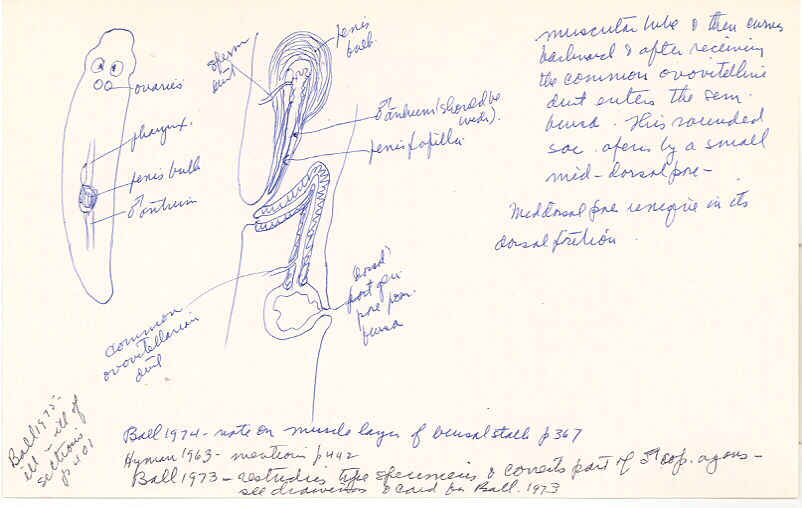 ovaries
pharynx.
penis bulb
♂ antrum
sperm
duct
penis
bulb.
♂ antrum (should be
wider).
penis papilla
dorsal
part
bursa
common
ovovitellarian
duct
muscular tube & then curves
backward & after receiving
the common ovovitelline
duct enters the sem.
bursa. This rounded
sac opens by a small
mid-dorsal pore-
Middorsal pore unique in its
dorsal position.
Ball 1975-
ill - ill of
sections
p 401
Ball 1974- note on muscle layer of bursal stalk p 367
Hyman 1963- mentions p 442
Ball 1973- restudies type specimens & corrects part of cop. organs-
see drawings & card for Ball. 1973